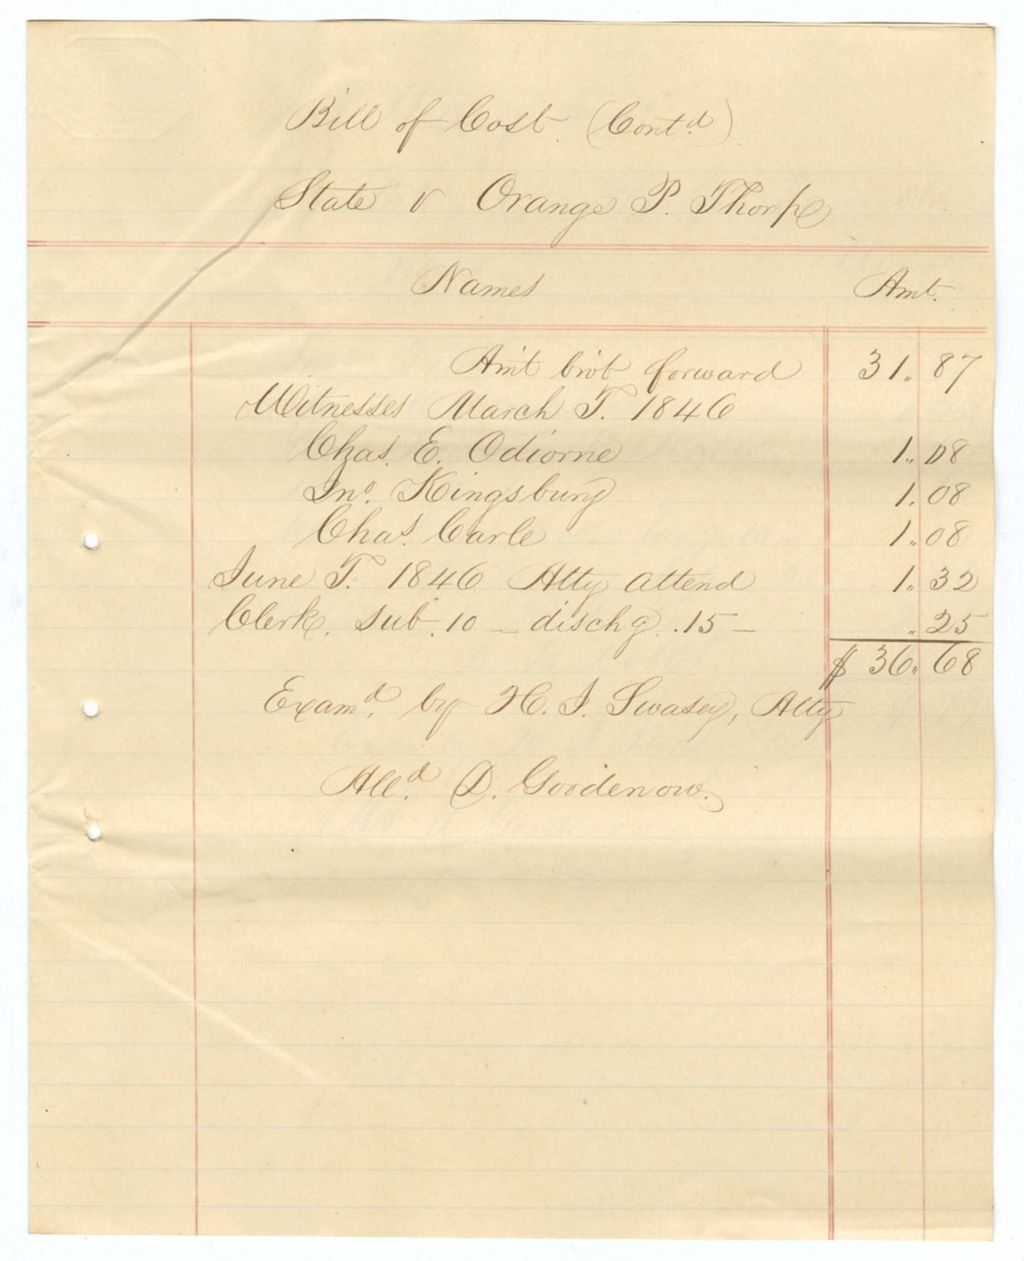 Bill of Cost (Contd)
State v Orange P. Thorpe
Names Amt.
Amt bro't forward 31.87
Witnesses March T. 1846
Chas. E. Odiorne 1.08
Jno. Kingsbury 1.08
Chas. Carle 1.08
June T. 1846 Atty attend 1.32
Clerk. sub. 10 – dischg. .15 – .25
$ 36.68
Examd. by H. J. Swasey, Atty
Alld. D. Goodenow.